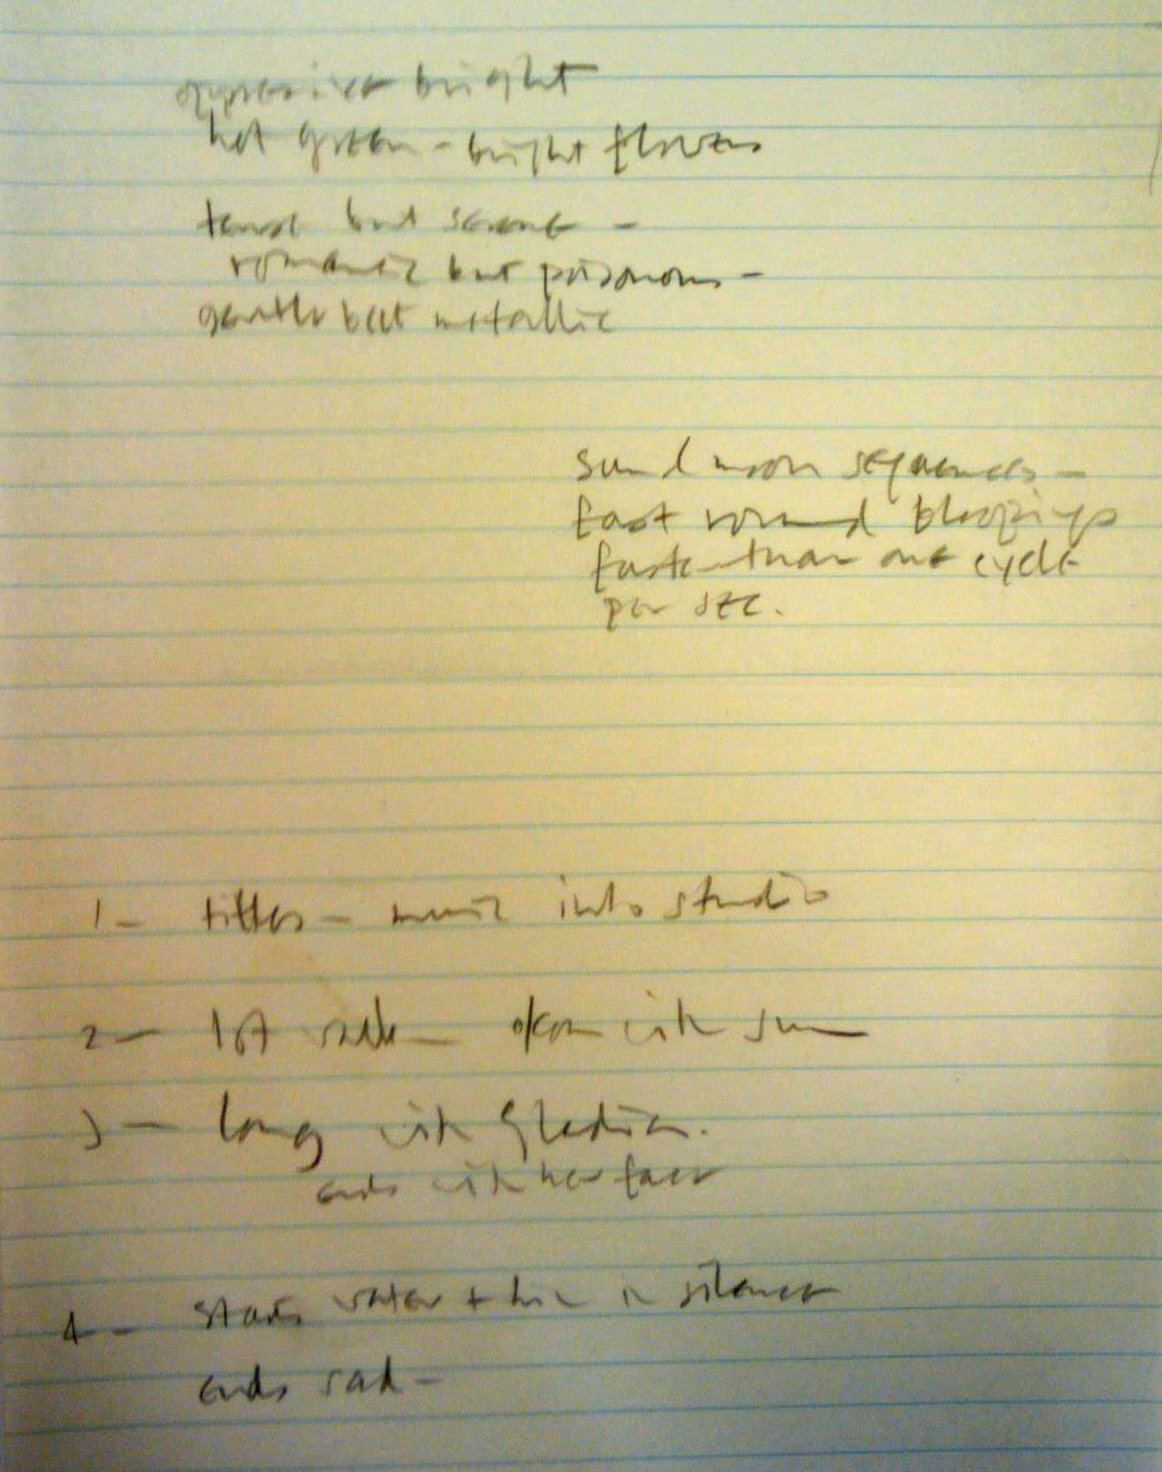 oppressive bright
hot green - bright flowers
tense but serene -
romantic but poisonous -
gentle but metallic
sun / moon sequences -
fast round bloopings
faster than one cycle
per sec.
1 - titles - music into studio
2 - 1st with sun
3 - long with
ends with her face
4 - starts water + in silence
ends sad -